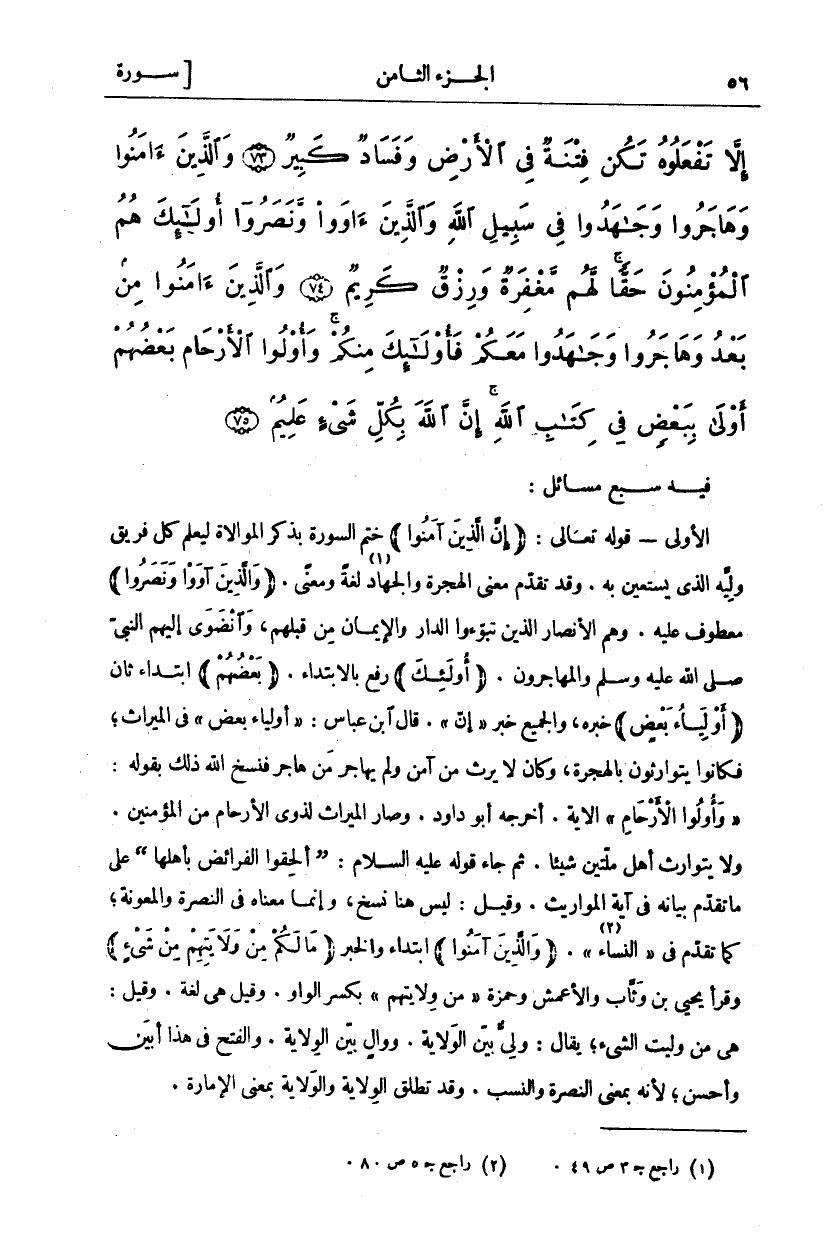 ٥٦ الجزء الثامن [ سورة
إِلَّا تَفْعَلُوهُ تَكُن فِتْنَةٌ فِي ٱلْأَرْضِ وَفَسَادٌ كَبِيرٌ ﴿٧٣﴾ وَٱلَّذِينَ ءَامَنُوا
وَهَاجَرُوا وَجَـٰهَدُوا فِي سَبِيلِ ٱللَّهِ وَٱلَّذِينَ ءَاوَوا۟ وَّنَصَرُوٓا أُولَـٰٓئِكَ هُمُ
ٱلْمُؤْمِنُونَ حَقًّاۚ لَّهُم مَّغْفِرَةٌ وَرِزْقٌ كَرِيمٌ ﴿٧٤﴾ وَٱلَّذِينَ ءَامَنُوا مِنۢ
بَعْدُ وَهَاجَرُوا وَجَـٰهَدُوا مَعَكُمْ فَأُوْلَـٰٓئِكَ مِنكُمْۚ وَأُوْلُوا ٱلْأَرْحَامِ بَعْضُهُمْ
أَوْلَىٰ بِبَعْضٍ فِي كِتَـٰبِ ٱللَّهِۚ إِنَّ ٱللَّهَ بِكُلِّ شَىْءٍ عَلِيمٌۢ ﴿٧٥﴾
فيه سبع مسائل :
الأولى — قوله تعالى : ﴿ إِنَّ الَّذِينَ آمَنُوا ﴾ ختم السورة بذكر الموالاة ليعلم كل فريق
وليّه الذى يستعين به . وقد تقدّم معنى الهجرة والجهاد (١) لغةً ومعنًى . ﴿ وَالَّذِينَ آوَوْا وَنَصَرُوا ﴾
معطوف عليه . وهم الأنصار الذين تبوّءوا الدار والإيمان مِن قبلهم، وَٱنْضَوَى إليهم النبىّ
صلى الله عليه وسلم والمهاجرون . ﴿ أُولَئِكَ ﴾ رفع بالابتداء . ﴿ بَعْضُهُمْ ﴾ ابتداء ثان
﴿ أَوْلِيَاءُ بَعْضٍ ﴾ خبره، والجميع خبر « إنّ » . قال ٱبن عباس : « أولياء بعض » فى الميراث؛
فكانوا يتوارثون بالهجرة، وكان لا يرث من آمن ولم يهاجر مَن هاجر فنسخ الله ذلك بقوله :
« وَأُولُوا الْأَرْحَامِ » الاية . أخرجه أبو داود . وصار الميراث لذوى الأرحام من المؤمنين .
ولا يتوارث أهل ملّتين شيئا . ثم جاء قوله عليه السلام : ” ألحِقوا الفرائض بأهلها “ على
ماتقدّم بيانه فى آية المواريث . وقيل : ليس هنا نسخ، وإنما معناه فى النصرة والمعونة؛
كما تقدّم فى « النساء (٢) » . ﴿ وَالَّذِينَ آمَنُوا ﴾ ابتداء والخبر ﴿ مَا لَكُمْ مِنْ وَلَايَتِهِمْ مِنْ شَيْءٍ ﴾
وقرأ يحيى بن وَثّاب والأعمش وحمزة « من وِلايتهم » بكسر الواو . وقيل هى لغة . وقيل :
هى من وليت الشىء؛ يقال : ولىٌّ بيّن الوَلاية . ووالٍ بيّن الوِلاية . والفتح فى هذا أبيَن
وأحسن؛ لأنه بمعنى النصرة والنسب . وقد تطلق الوِلاية والوَلاية بمعنى الإمارة .
(١) راجع جـ ٣ ص ٤٩ . (٢) راجع جـ ٥ ص ٨٠ .